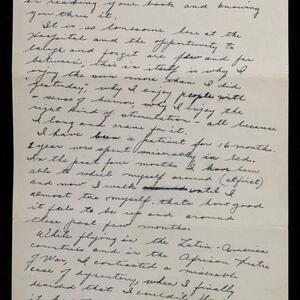 in reading your book and knowing
you thru it.
It is so lonesome here at the
Hospital and the opportunity to
laugh and forget are few and far
between, this in itself is why I
enjoy the sun more than I did
"yesterday," why I enjoy people with
a sense of humor, why I enjoy the
right kind of stimulation - all because
I long and crave for it.
I have been a patient for 16 months.
1 year was spent miserably in bed.
In the past four months I have been
able to wheel myself around (at first)
and now I walk until I
almost tire myself. thats how good
it feels to be up and around
these past few months.
While flying in the Latin-America
countries and in the African Theatre
of War, I contracted a miserable
case of dysentery, when I finally
decided that I couldn't